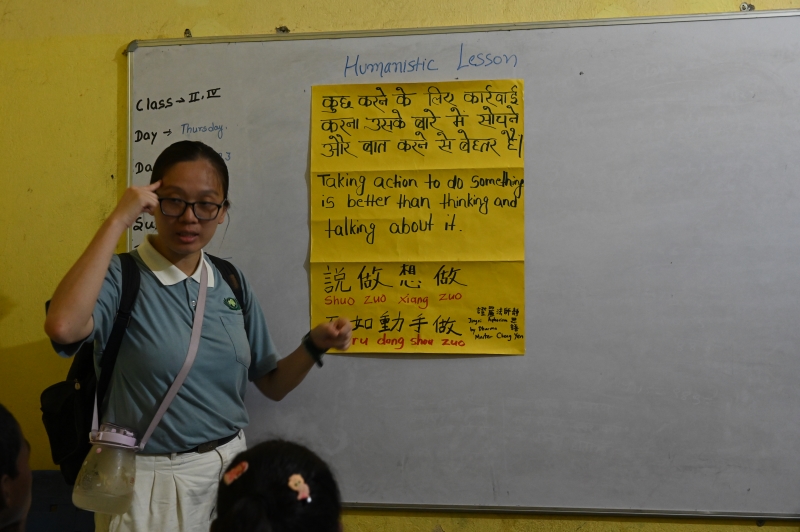 Humanistic Lesson
Class → II, IV
Day → Thursday.
Da
3
Su
कुछ करने के लिए कार्रवाई
करना उसके बारे में सोचने
और बात करने से बेहतर है।
Taking action to do something
is better than thinking and
talking about it.
說 做 想 做
Shuo zuo xiang zuo
如 動 手 做
ru dong shou zuo
證嚴法師靜思語
Jingsi Aphorism
by Dharma
Master Cheng Yen